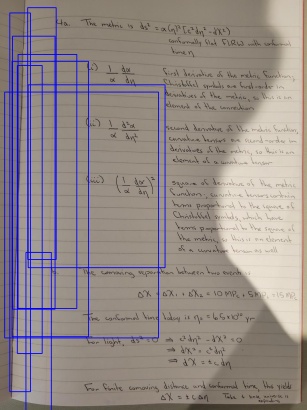 4a. The metric is ds² = α(η)²[c²dη² - dX²]
conformally flat FLRW with conformal
time η
(i) 1/α dα/dη first derivative of the metric function,
Christoffel symbols are first-order in
derivatives of the metric, so this is an
element of the connection
(ii) 1/α d²α/dη² second derivative of the metric function,
curvature tensors are second order in
derivatives of the metric, so this is an
element of a curvature tensor
(iii) (1/α dα/dη)² square of derivative of the metric
function, curvature tensors contain
terms proportional to the square of
Christoffel symbols, which have
terms proportional to the square of
the metric, so this is an element
of a curvature tensor as well
The comoving separation between two events is
ΔX = ΔX₁ + ΔX₂ = 10 Mpc + 5 Mpc = 15 Mpc
The conformal time today is η₀ =
For light, ds² = 0 ⇒ c²dη² - dX² = 0
⇒ dX² = c²dη²
⇒ dX = ± c dη
For finite comoving distance and conformal time, this yields
ΔX = ± c Δη Take + since universe is
expanding